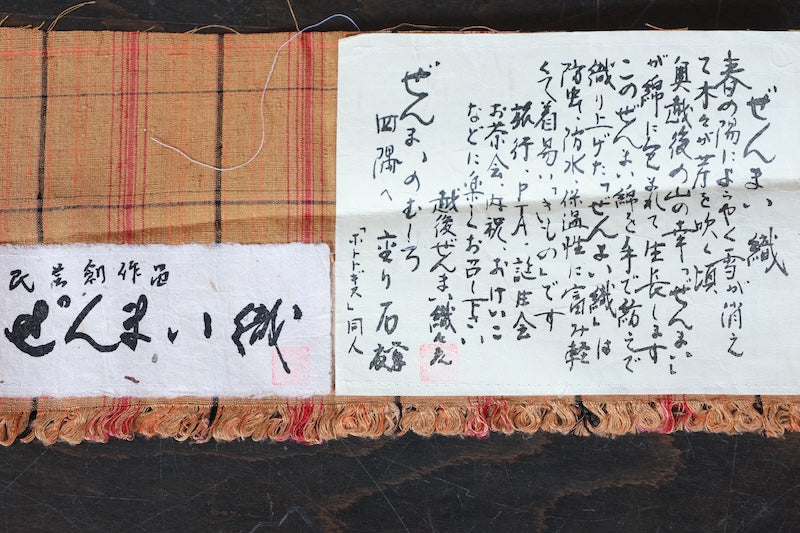 ぜんまい織
春の陽にようやく雪が消え
て木々が芽を吹く頃
奥越後の山の幸、"ぜんまい"
が綿に包まれて生長します
このぜんまい綿を手で紡いで
織り上げた「ぜんまい織」は
防虫、防水、保温性に富み軽
くて着易い「きもの」です
旅行、PTA、誕生会
お茶会、内祝、おけいこ
などに楽しくお召し下さい
越後ぜんまい織
ぜんまいのむしろ
四隅へ 重り石
「ホトトギス」同人
民芸創作品
ぜんまい織